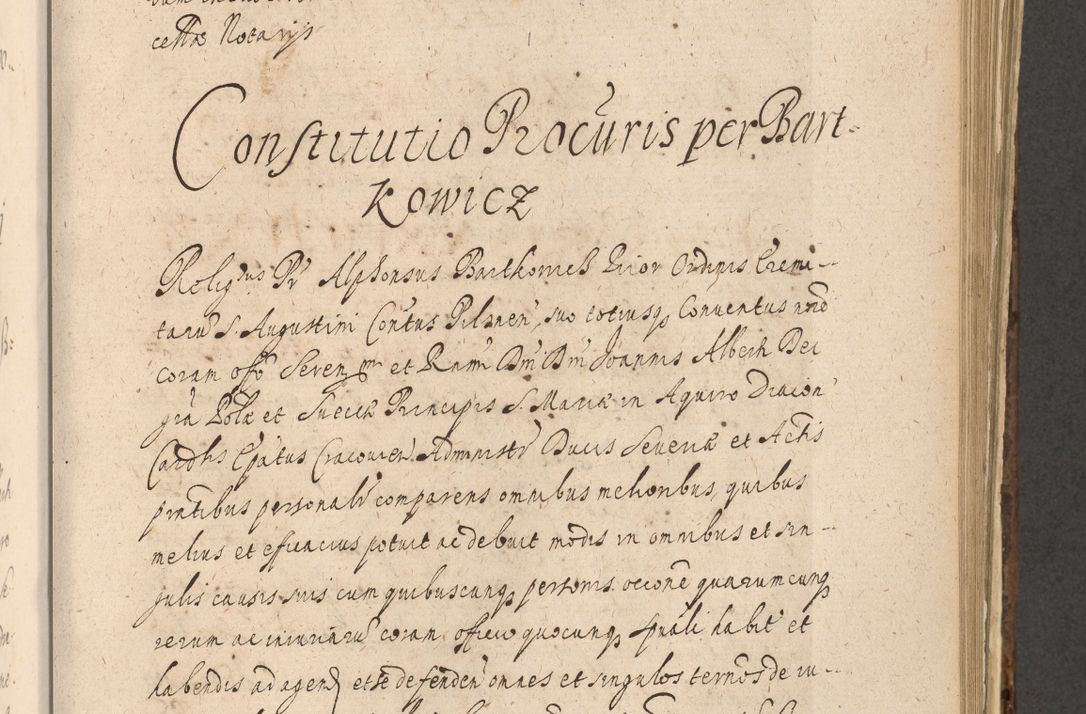 cettas Notarijs
Constitutio Procuris per Bart-
kowicz
Religsus Pr Alphonsus Barthkowicz Prior Ordinis Eremi-
taru S. Augustini Contus Pilznen, suo totiusq Conventus noie
coram offo Seren et Rnmi Dni Dni Joannis Alberti Dei
gra Polae et Sueciae Principis S. Mariae in Aquiro Diacon
Cardlis Epatus Cracovien Administr Ducis Severiae et Actis
pntibus personalr comparens omnibus melioribus, quibus
melius et efficacius potuit ac debuit modis in omnibus et sin-
gulis causis suis cum quibuscunq personis occone quarumcunq
rerum ac iniuriaru coram officio quocunq spuali habit et
habendis ad agend et se defenden omnes et singulos ternos de iu-